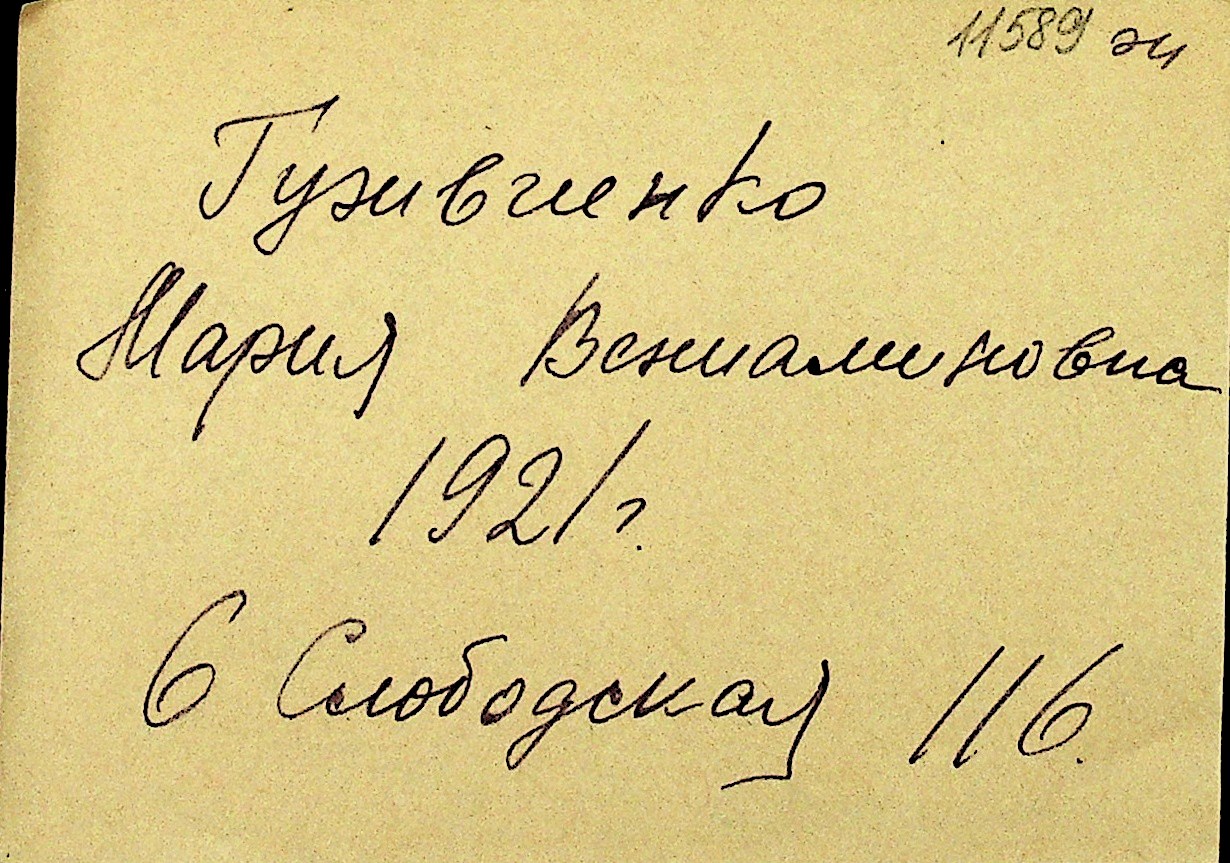 11589 эч
Гуживченко
Мария Вениаминовна
1921г.
6 Слободская 116.